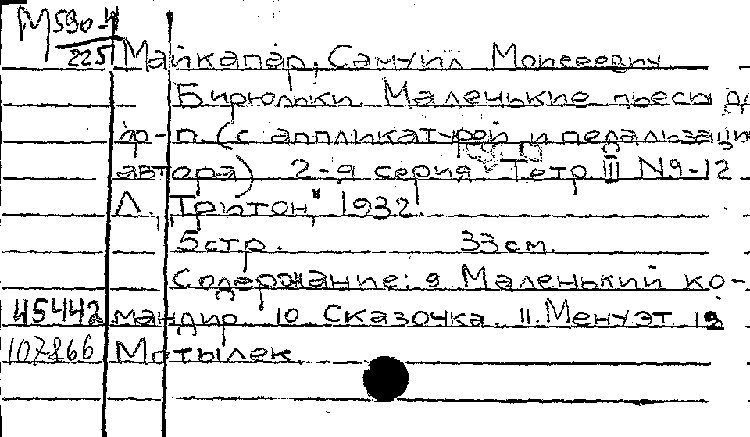 М 590-4
225
Майкапар, Самуил Моисеевич
Бирюльки. Маленькие пьесы д
ф-п. (с аппликатурой и педализаци
автора) 2-я серия. Тетр. III N9-12
Л., "Тритон", 1932.
5стр. 33см.
Содержание: 9 Маленький ко-
45442 мандир 10. Сказочка. 11. Менуэт 12
107866 Мотылек.